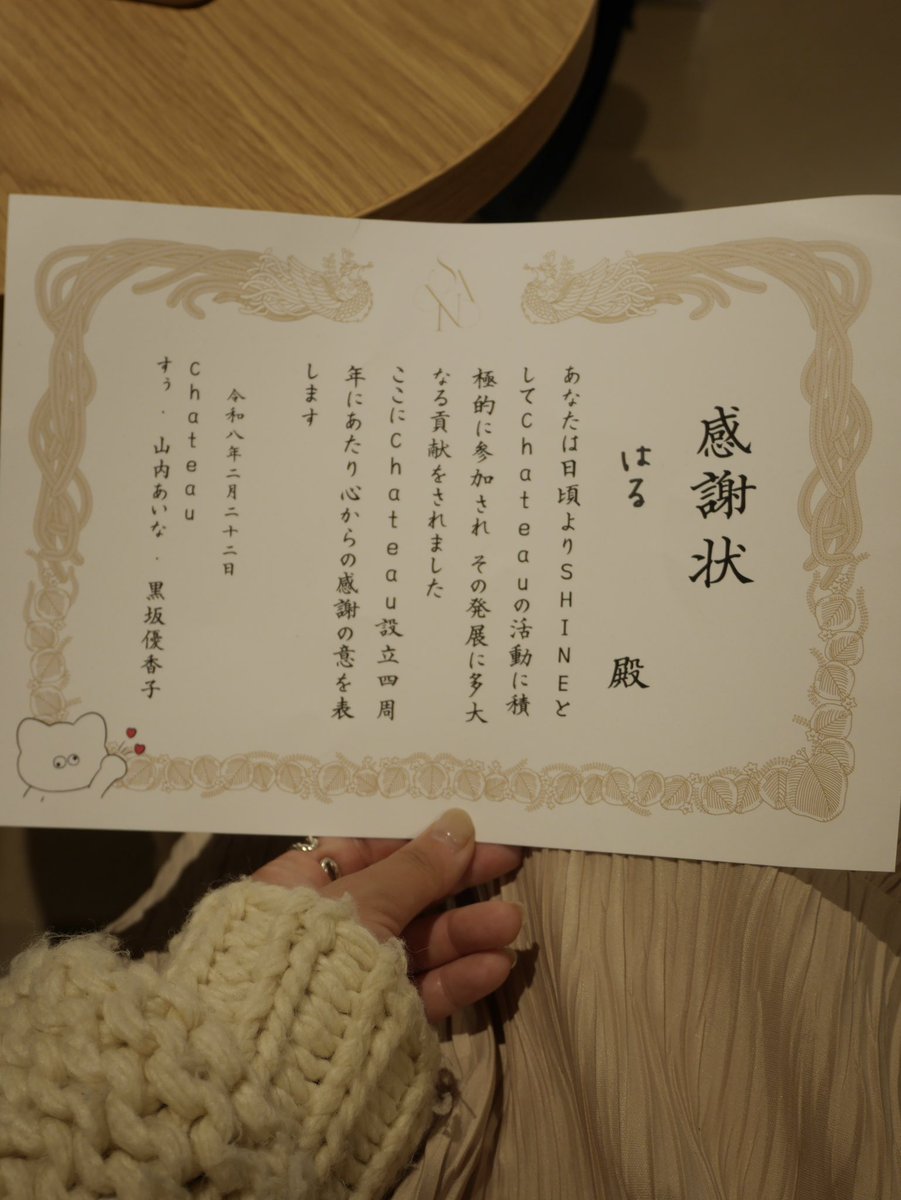 感謝状
はる 殿
あなたは日頃よりSHINEと
してChateauの活動に積
極的に参加され その発展に多大
なる貢献をされました
ここにChateau設立四周
年にあたり心からの感謝の意を表
します
令和八年二月二十二日
Chateau
すぅ . 山内あいな . 黒坂優香子